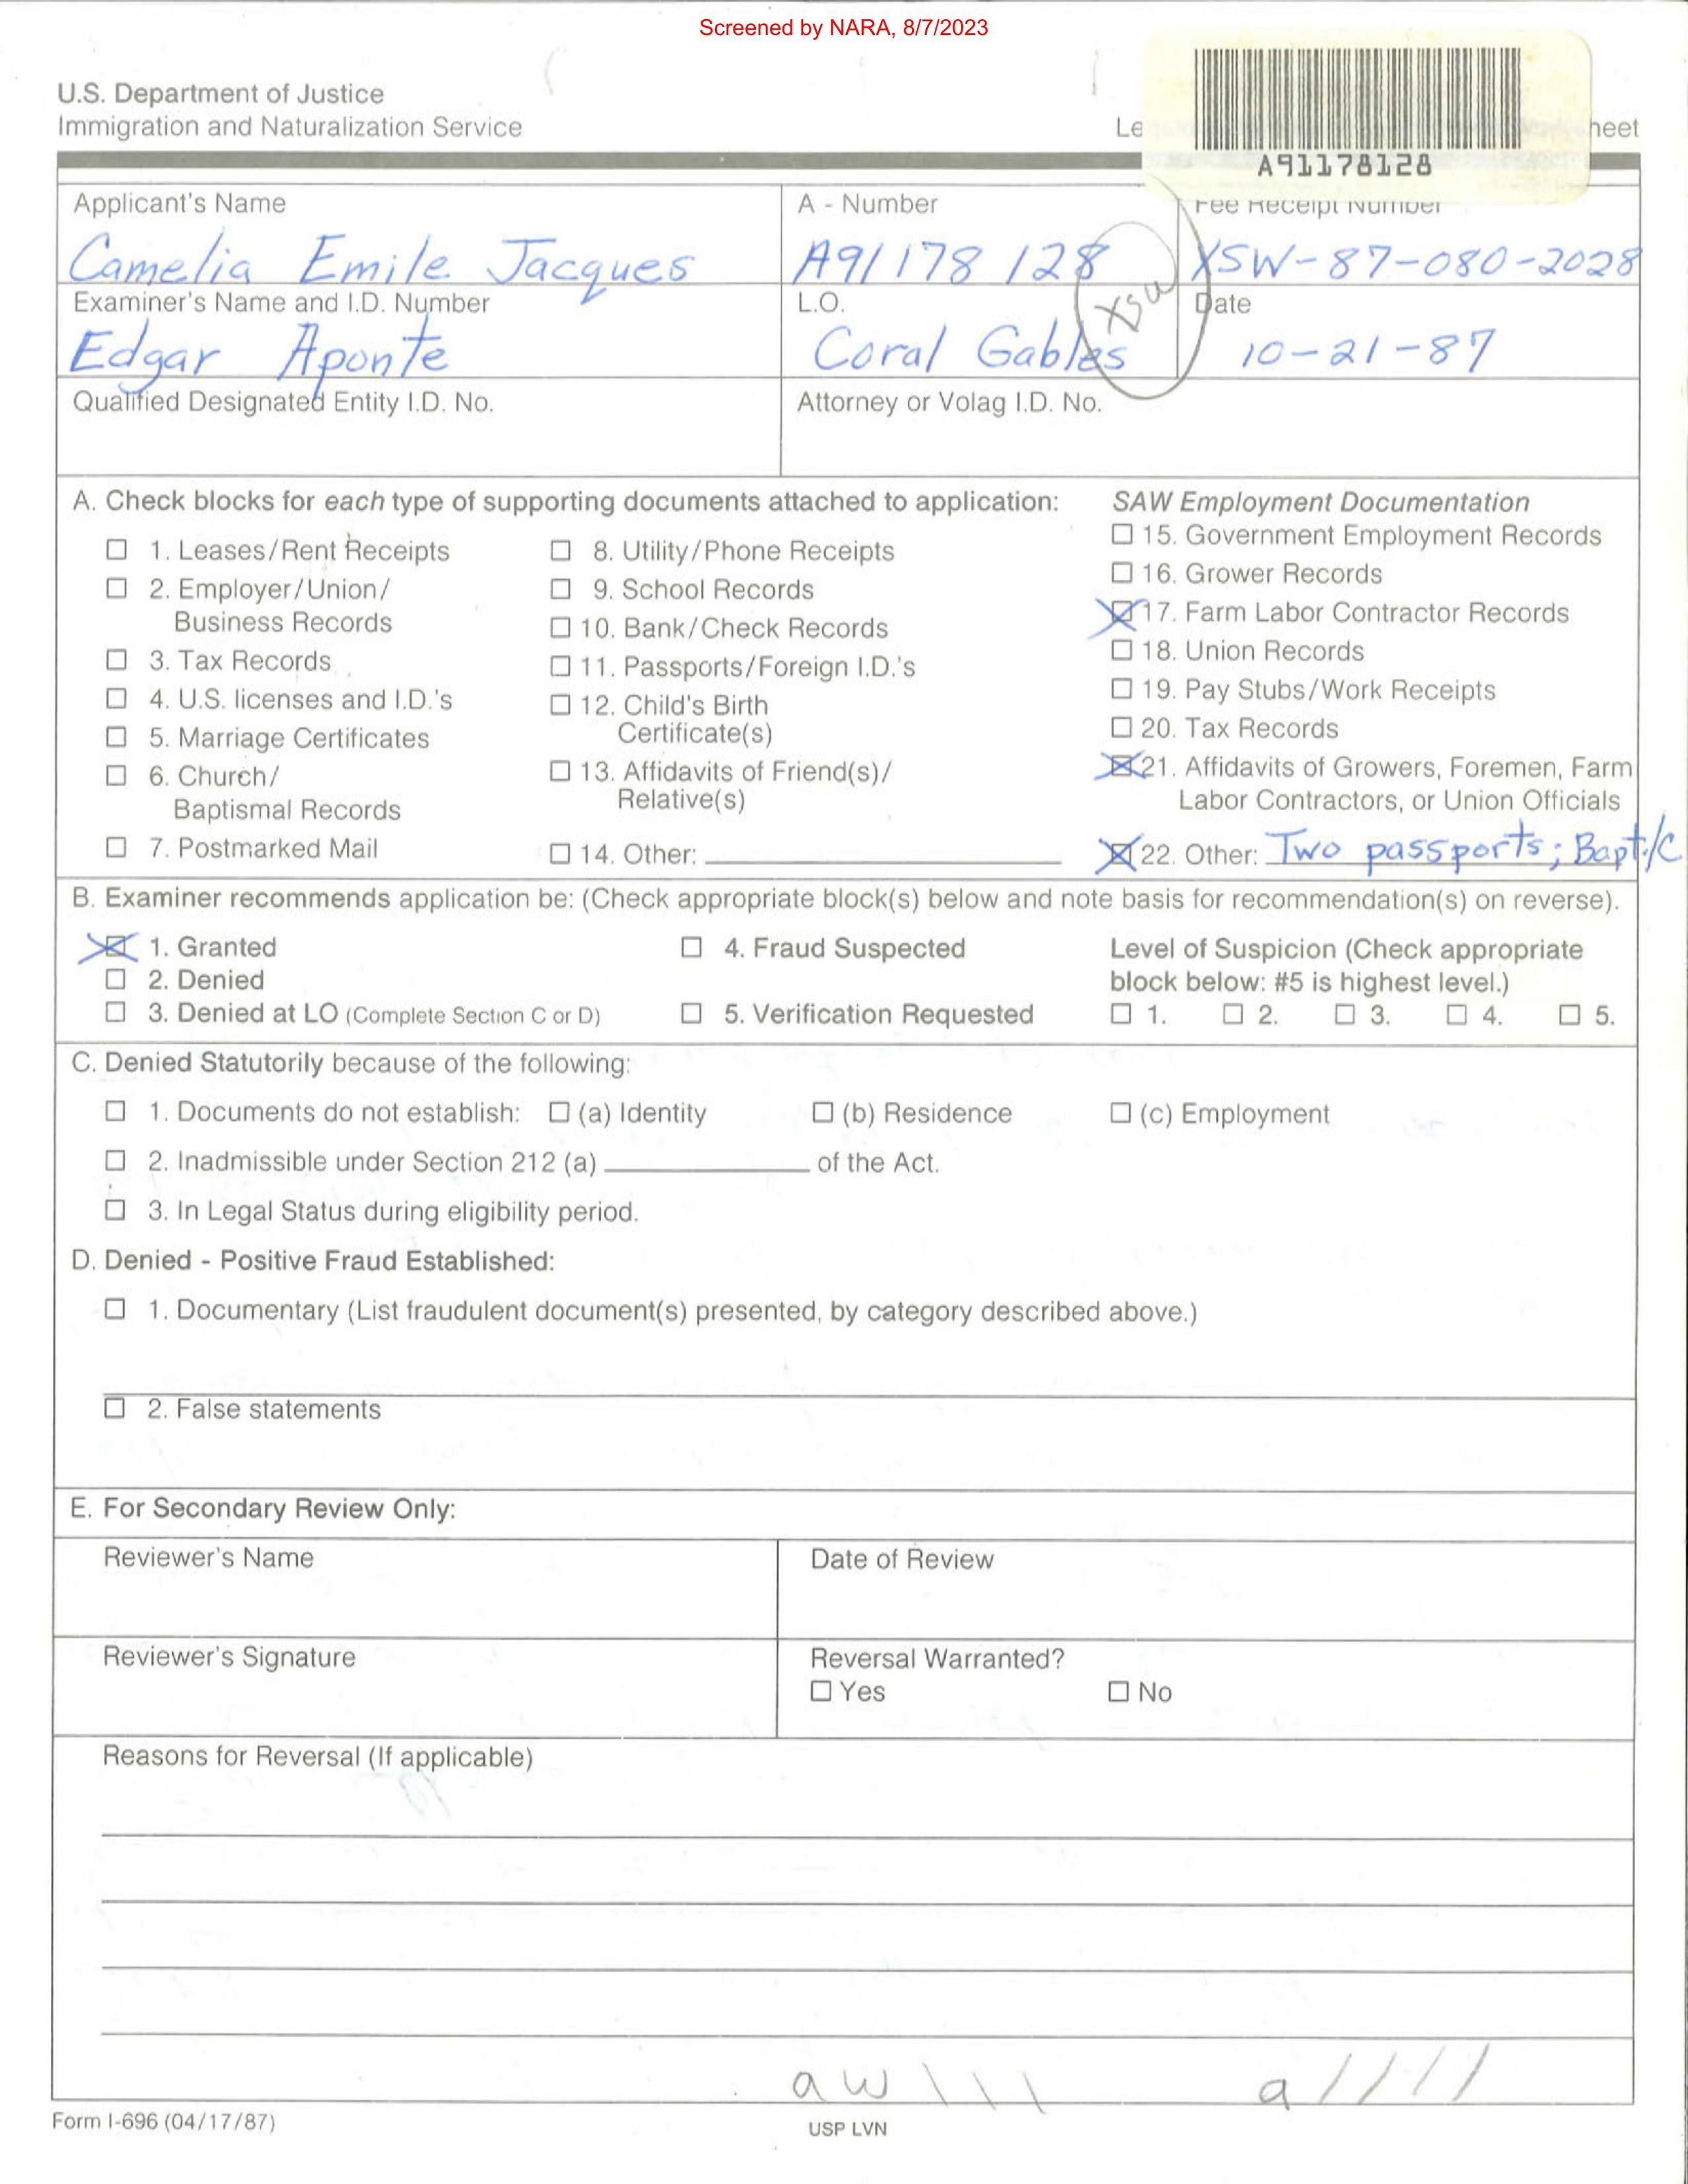 Screened by NARA, 8/7/2023
U.S. Department of Justice
Immigration and Naturalization Service
A91178128
Applicant's Name
A - Number
Fee Receipt Number
Camelia Emile Jacques
A91 178 128
XSW-87-080-2028
Examiner's Name and I.D. Number
L.O.
xsw
Date
Edgar Aponte
Coral Gables
10-21-87
Qualified Designated Entity I.D. No.
Attorney or Volag I.D. No.
A. Check blocks for each type of supporting documents attached to application:
☐ 1. Leases/Rent Receipts
☐ 2. Employer/Union/
Business Records
☐ 3. Tax Records
☐ 4. U.S. licenses and I.D.'s
☐ 5. Marriage Certificates
☐ 6. Church/
Baptismal Records
☐ 7. Postmarked Mail
☐ 8. Utility/Phone Receipts
☐ 9. School Records
☐ 10. Bank/Check Records
☐ 11. Passports/Foreign I.D.'s
☐ 12. Child's Birth
Certificate(s)
☐ 13. Affidavits of Friend(s)/
Relative(s)
☐ 14. Other:
SAW Employment Documentation
☐ 15. Government Employment Records
☐ 16. Grower Records
☒ 17. Farm Labor Contractor Records
☐ 18. Union Records
☐ 19. Pay Stubs/Work Receipts
☐ 20. Tax Records
☒ 21. Affidavits of Growers, Foremen, Farm
Labor Contractors, or Union Officials
☒ 22. Other: Two passports; Bapt./C
B. Examiner recommends application be: (Check appropriate block(s) below and note basis for recommendation(s) on reverse).
☒ 1. Granted
☐ 2. Denied
☐ 3. Denied at LO (Complete Section C or D)
☐ 4. Fraud Suspected
☐ 5. Verification Requested
Level of Suspicion (Check appropriate
block below: #5 is highest level.)
☐ 1. ☐ 2. ☐ 3. ☐ 4. ☐ 5.
C. Denied Statutorily because of the following:
☐ 1. Documents do not establish: ☐ (a) Identity ☐ (b) Residence ☐ (c) Employment
☐ 2. Inadmissible under Section 212 (a) of the Act.
☐ 3. In Legal Status during eligibility period.
D. Denied - Positive Fraud Established:
☐ 1. Documentary (List fraudulent document(s) presented, by category described above.)
☐ 2. False statements
E. For Secondary Review Only:
Reviewer's Name
Date of Review
Reviewer's Signature
Reversal Warranted?
☐ Yes ☐ No
Reasons for Reversal (If applicable)
aw \ \ \
a / / / /
Form I-696 (04/17/87)
USP LVN